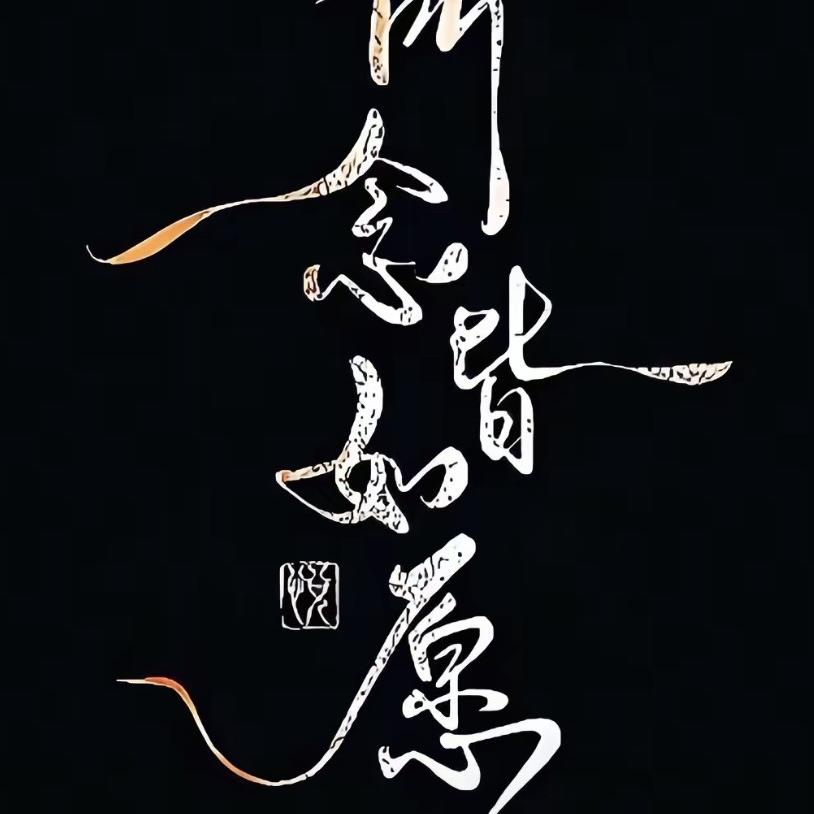 念皆如愿
悦